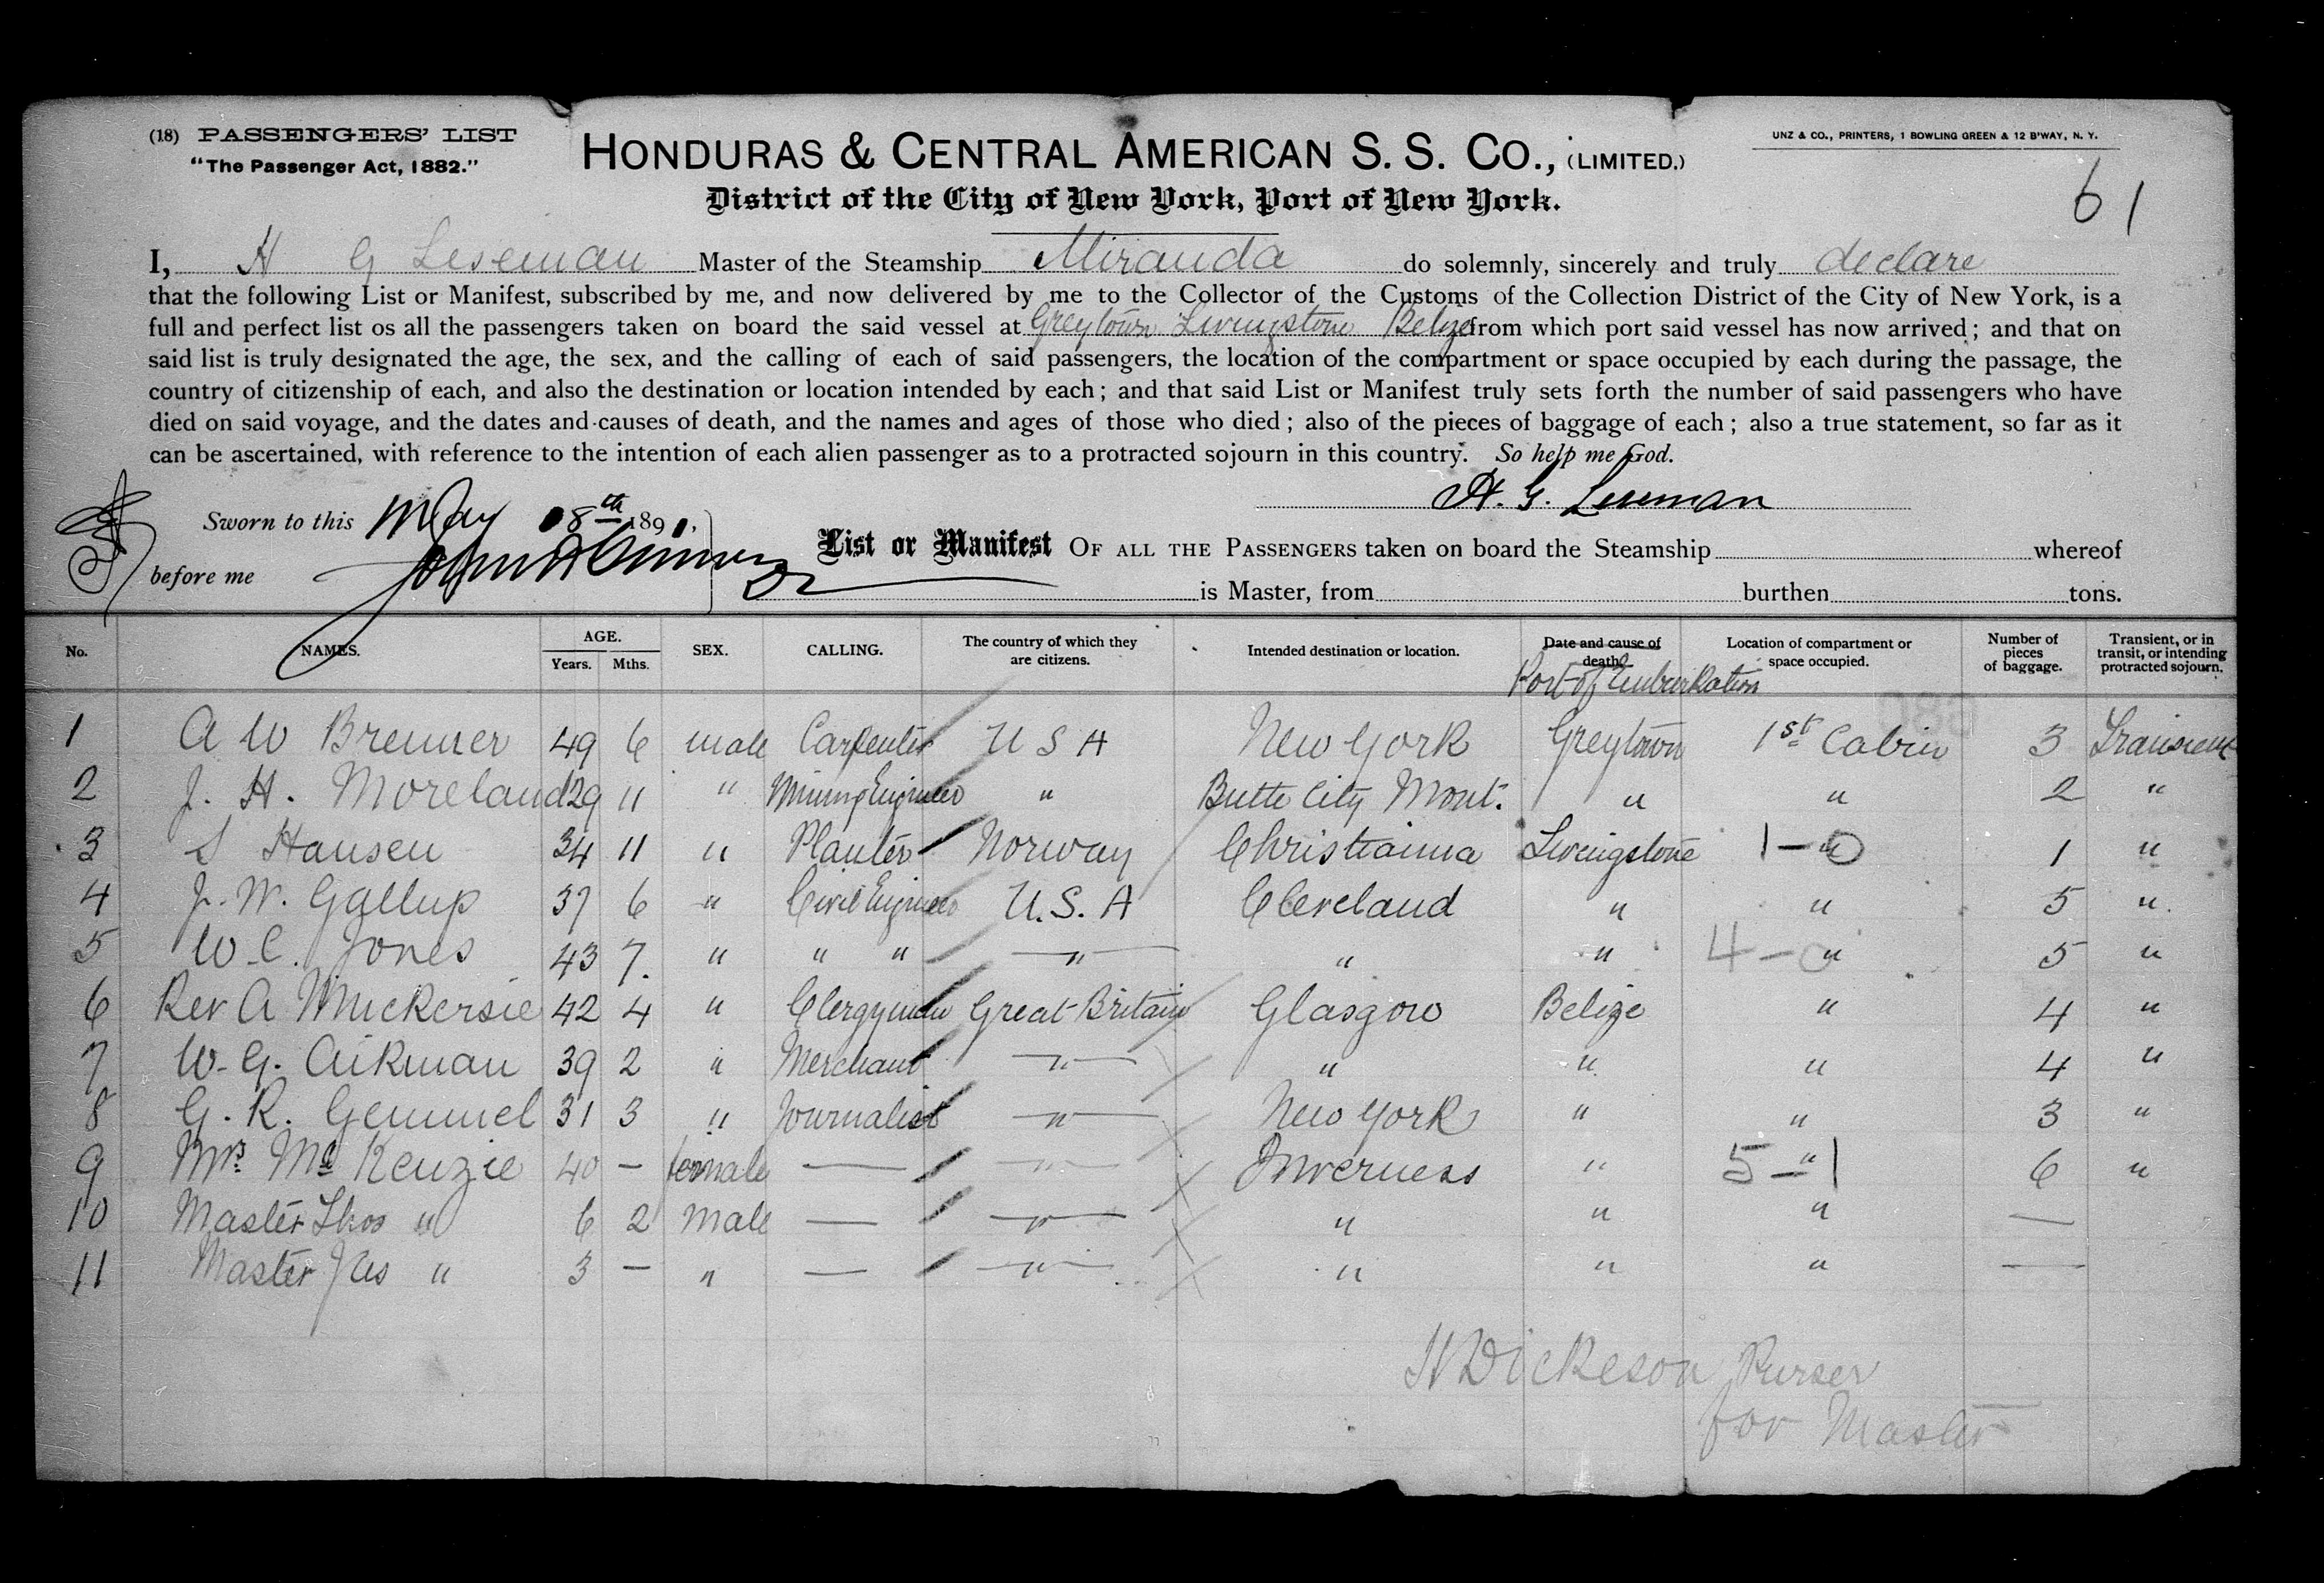 (18) PASSENGERS' LIST
"The Passenger Act, 1882."
HONDURAS & CENTRAL AMERICAN S. S. CO., (LIMITED.)
UNZ & CO., PRINTERS, 1 BOWLING GREEN & 12 B'WAY, N. Y.
District of the City of New York, Port of New York.
61
I, H G Leseman Master of the Steamship Miranda do solemnly, sincerely and truly declare
that the following List or Manifest, subscribed by me, and now delivered by me to the Collector of the Customs of the Collection District of the City of New York, is a
full and perfect list os all the passengers taken on board the said vessel at Greytown Livingstone Belize from which port said vessel has now arrived; and that on
said list is truly designated the age, the sex, and the calling of each of said passengers, the location of the compartment or space occupied by each during the passage, the
country of citizenship of each, and also the destination or location intended by each; and that said List or Manifest truly sets forth the number of said passengers who have
died on said voyage, and the dates and causes of death, and the names and ages of those who died; also of the pieces of baggage of each; also a true statement, so far as it
can be ascertained, with reference to the intention of each alien passenger as to a protracted sojourn in this country. So help me God.
H. G. Leseman
Sworn to this May 18th 1891,
before me
List or Manifest OF ALL THE PASSENGERS taken on board the Steamship whereof
is Master, from burthen tons.
No. NAMES. AGE. Years. Mths. SEX. CALLING. The country of which they are citizens. Intended destination or location. Date and cause of death. Location of compartment or space occupied. Number of pieces of baggage. Transient, or in transit, or intending protracted sojourn.
Port of Embarkation
1 A W Brenner 49 6 male Carpenter U S A New York Greytown 1st Cabin 3 Transient
2 J. H. Moreland 29 11 " Mining Engineer " Butte City Mont. " " 2 "
3 S Hansen 34 11 " Planter Norway Christianna Livingstone 1-0 " 1 "
4 J. W. Gallup 37 6 " Civil Engineer U.S.A Cleveland " " 5 "
5 W C. Jones 43 7. " " " " " " 4-0 " 5 "
6 Rev A Muckersie 42 4 " Clergyman Great Britain Glasgow Belize " 4 "
7 W. G. Aikman 39 2 " Merchant " " " " 4 "
8 G. R. Gemmel 31 3 " Journalist " New York " " 3 "
9 Mrs. Mc Kenzie 40 — female — " Inverness " 5-1 " 6 "
10 Master Thos " 6 2 male — " " " " —
11 Master Jas " 3 — " — " " " " —
H Dickeson Purser
for Master